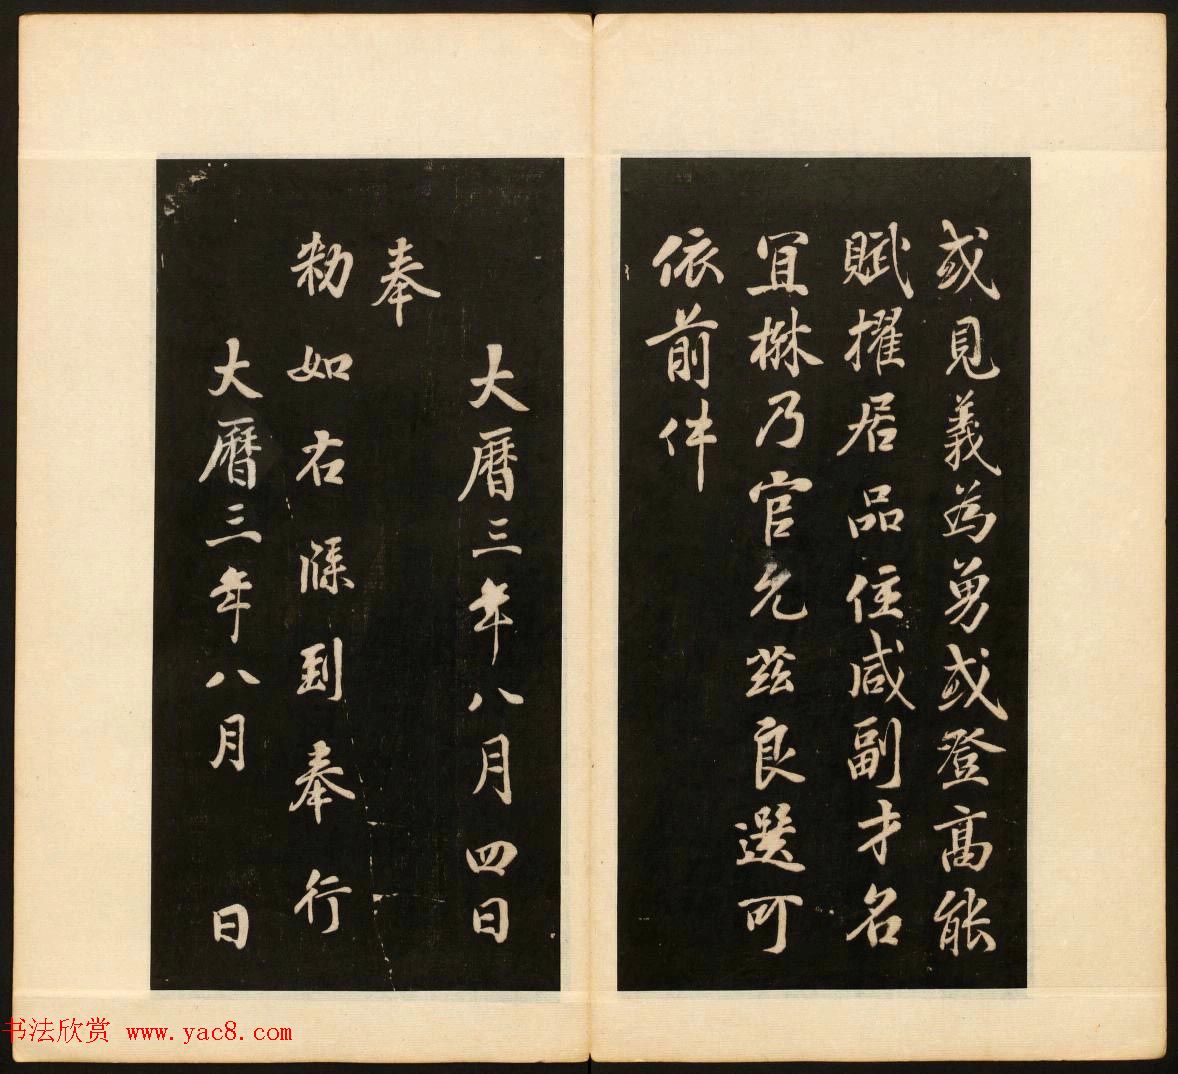 或見義為勇或登高能
賦擢居品位咸副才名
冝楙乃官允茲良選可
依前件
大曆三年八月四日
奉
勑如右牒到奉行
大曆三年八月　日
书法欣赏 www.yac8.com